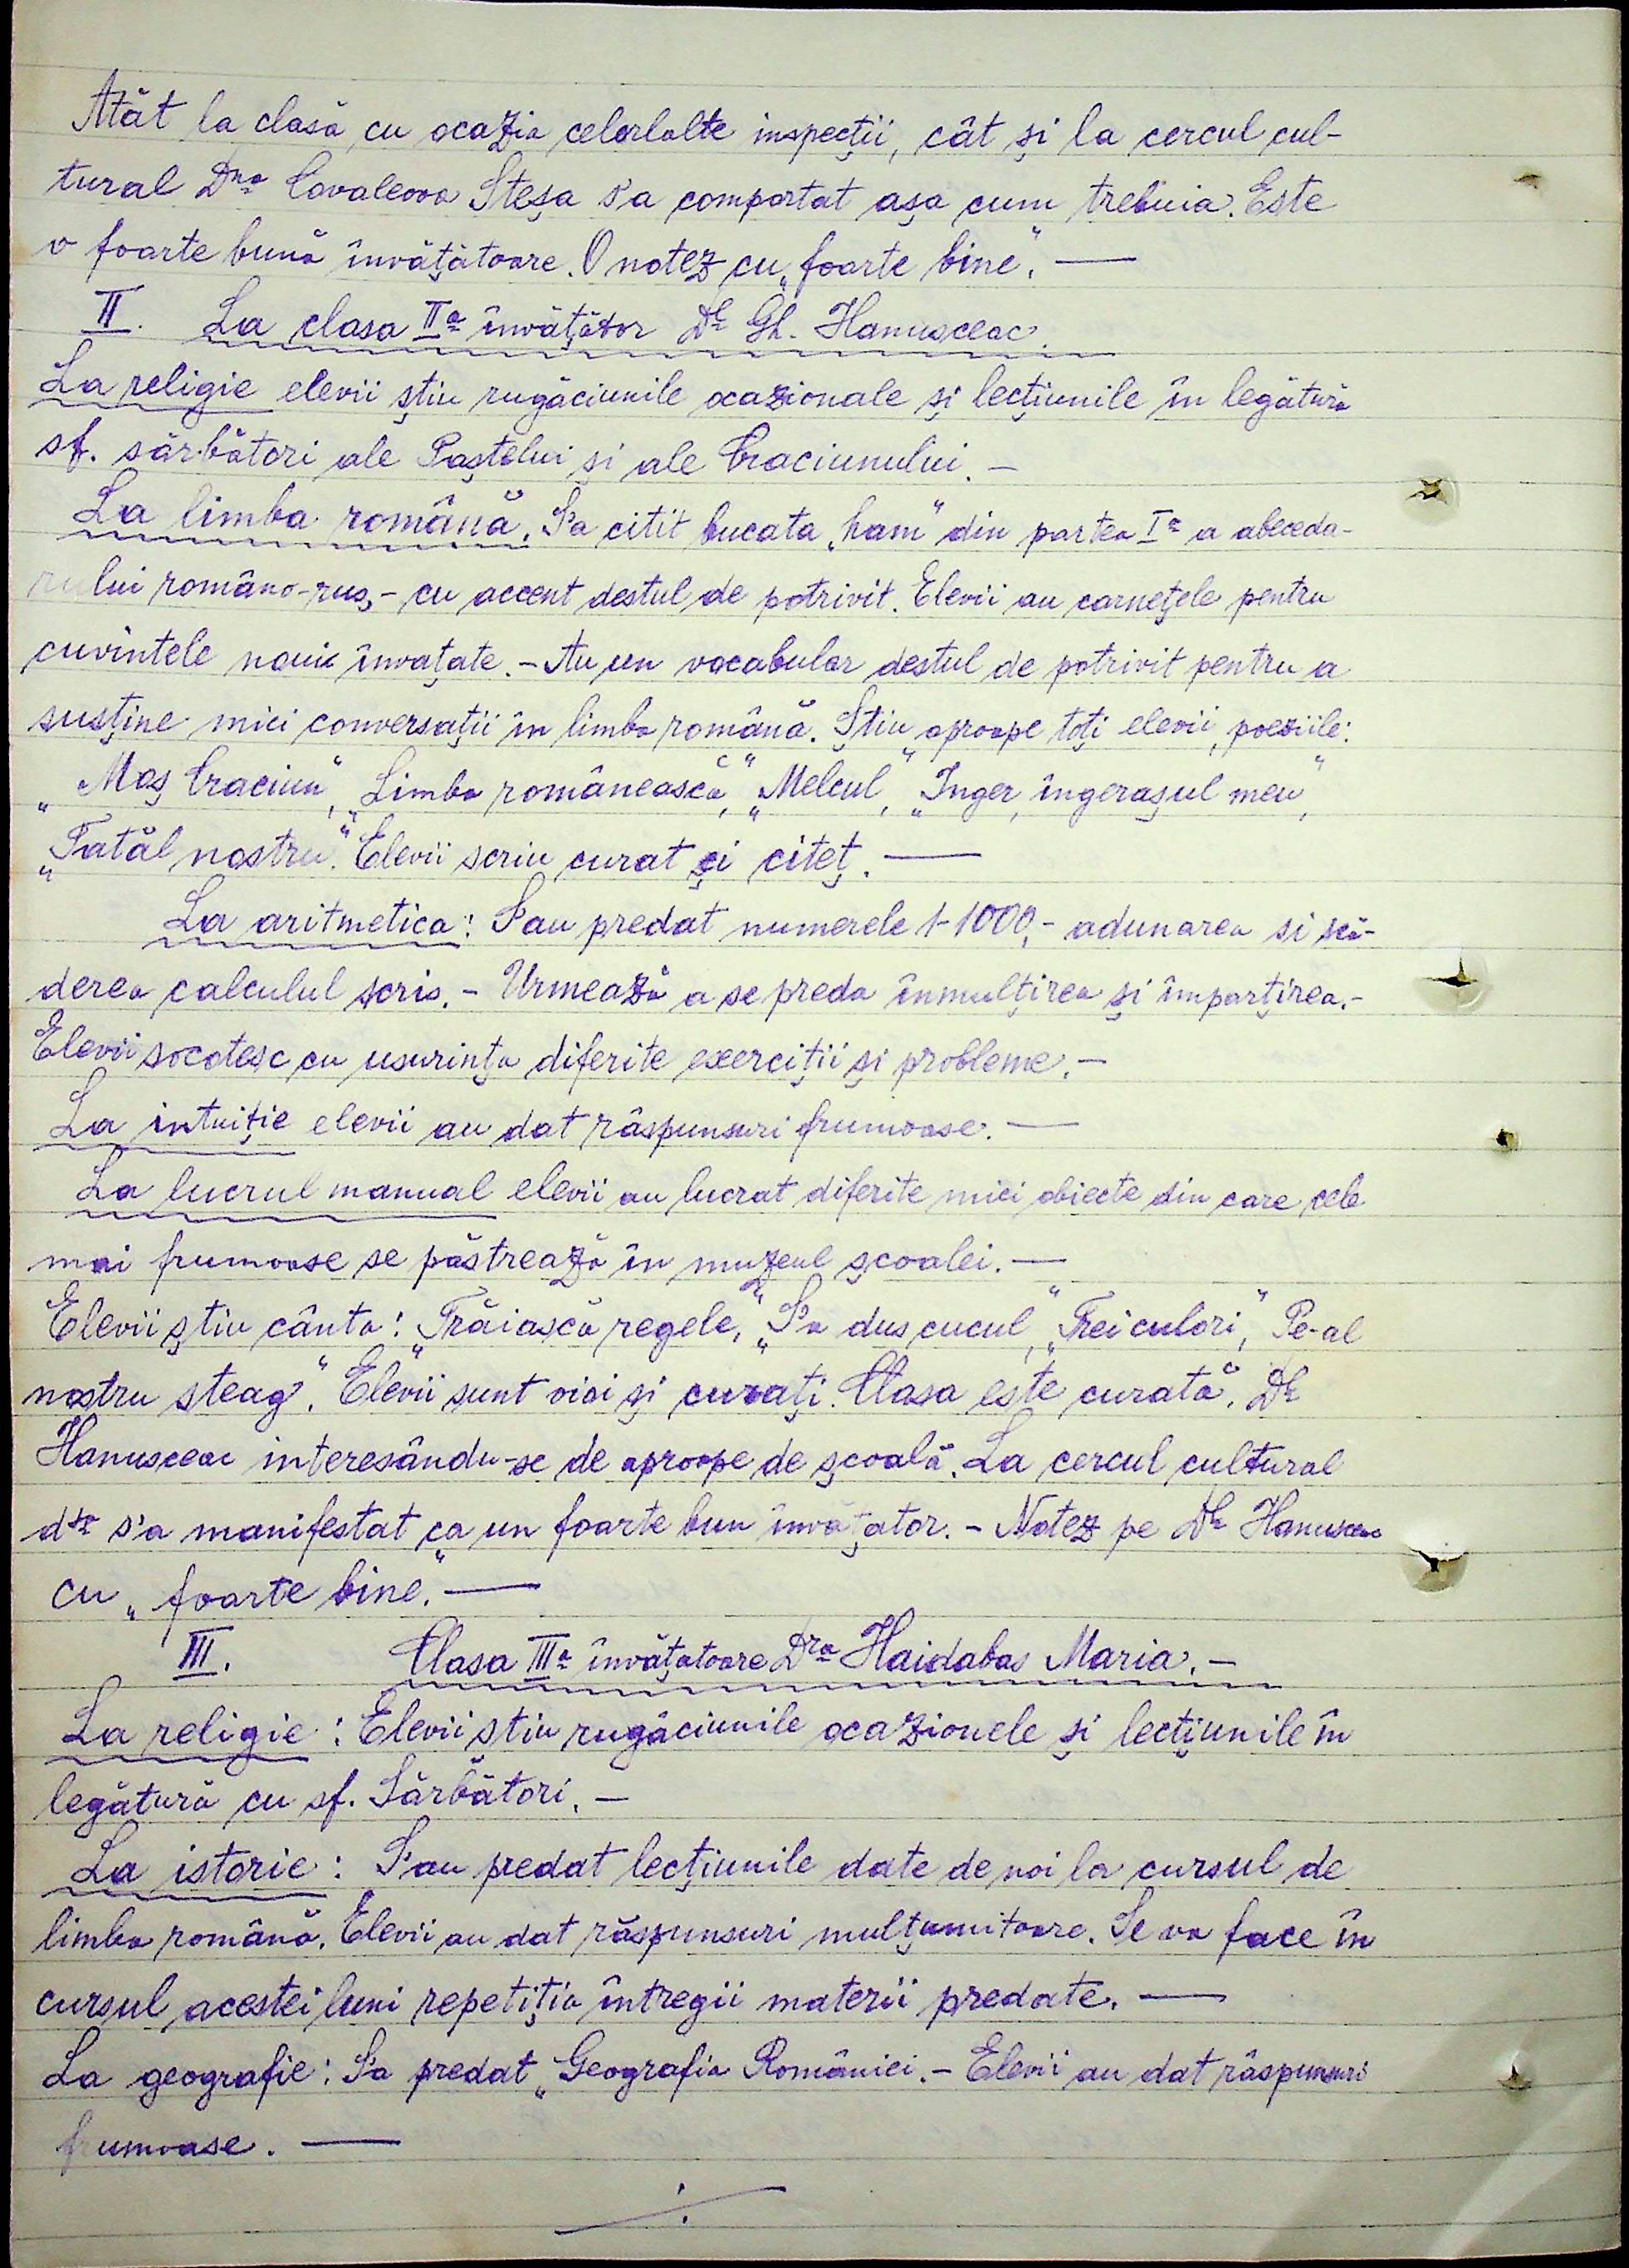 Atât la clasă cu ocazia celorlalte inspecții, cât și la cercul cul-
tural Dna Covaleova Steșa s'a comportat așa cum trebuia. Este
o foarte bună învățătoare. O notez cu „foarte bine". —
II. La clasa IIa învățător Dl Gh. Hanusceac.
La religie elevii știu rugăciunile ocazionale și lecțiunile în legătură
sf. sărbători ale Paștelui și ale Craciunului. —
La limba română. S'a citit bucata „ham" din partea Ia a abeceda-
rului româno-rus, - cu accent destul de potrivit. Elevii au carnețele pentru
cuvintele noui învațate. - Au un vocabular destul de potrivit pentru a
susține mici conversații în limba română. Știu aproape toți elevii, poeziile:
„Moș Craciun", „Limba românească", „Melcul", „Inger, îngerașul meu",
„Tatăl nostru". Elevii scriu curat și citeț. —
La aritmetica: S'au predat numerele 1-1000, - adunarea si scă-
derea calculul scris. - Urmează a se preda înmulțirea și împarțirea. -
Elevii socotesc cu usurința diferite exerciții și probleme. —
La intuiție elevii au dat răspunsuri frumoase. —
La lucrul manual elevii au lucrat diferite mici obiecte din care cele
mai frumoase se păstrează în muzeul școalei. —
Elevii știu cânta: „Trăiască regele", „S'a dus cucul", „Trei culori", Pe-al
nostru steag". Elevii sunt vioi și curați. Clasa este curată, Dl
Hanusceac interesându-se de aproape de școală. La cercul cultural
dsa s'a manifestat ca un foarte bun învațator. - Notez pe Dl Hanusceac
cu „foarte bine". —
III. Clasa IIIa învățatoare Dra Haidabas Maria. —
La religie: Elevii stiu rugăciunile ocazionele și lecțiunile în
legătură cu sf. Sărbători. —
La istorie: S'au predat lecțiunile date de noi la cursul de
limba română. Elevii au dat răspunsuri mulțumitoare. Se va face în
cursul acestei luni repetiția întregii materii predate. —
La geografie: S'a predat „Geografia României. - Elevii au dat răspunsuri
frumoase. —
./.